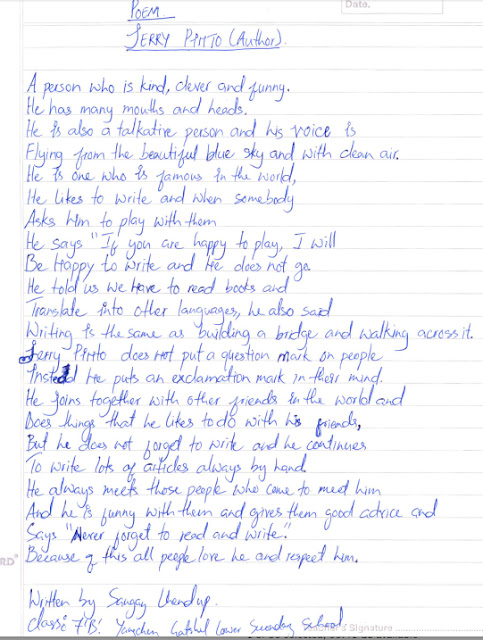 Date.
POEM
JERRY PINTO (Author).
A person who is kind, clever and funny.
He has many mouths and heads.
He is also a talkative person and his voice is
Flying from the beautiful blue sky and with clean air.
He is one who is famous in the world,
He likes to write and when somebody
Asks him to play with them
He says "If you are happy to play, I will
Be Happy to write and He does not go.
He told us we Have to read books and
Translate into other languages, he also said
Writing is the same as building a bridge and walking across it.
Jerry Pinto does not put a question mark on people
Insted He puts an exclamation mark in their mind.
He joins together with other friends in the world and
Does things that he likes to do with his friends,
But he does not forget to write and he continues
To write lots of articles always by hand.
He always meets those people who come to meet him
And he is funny with them and gives them good advice and
Says "Never forget to read and write."
Because of this all people love he and respect him.
Written by Sangay
Class: 7'B'. Lower Secondary School
Signature